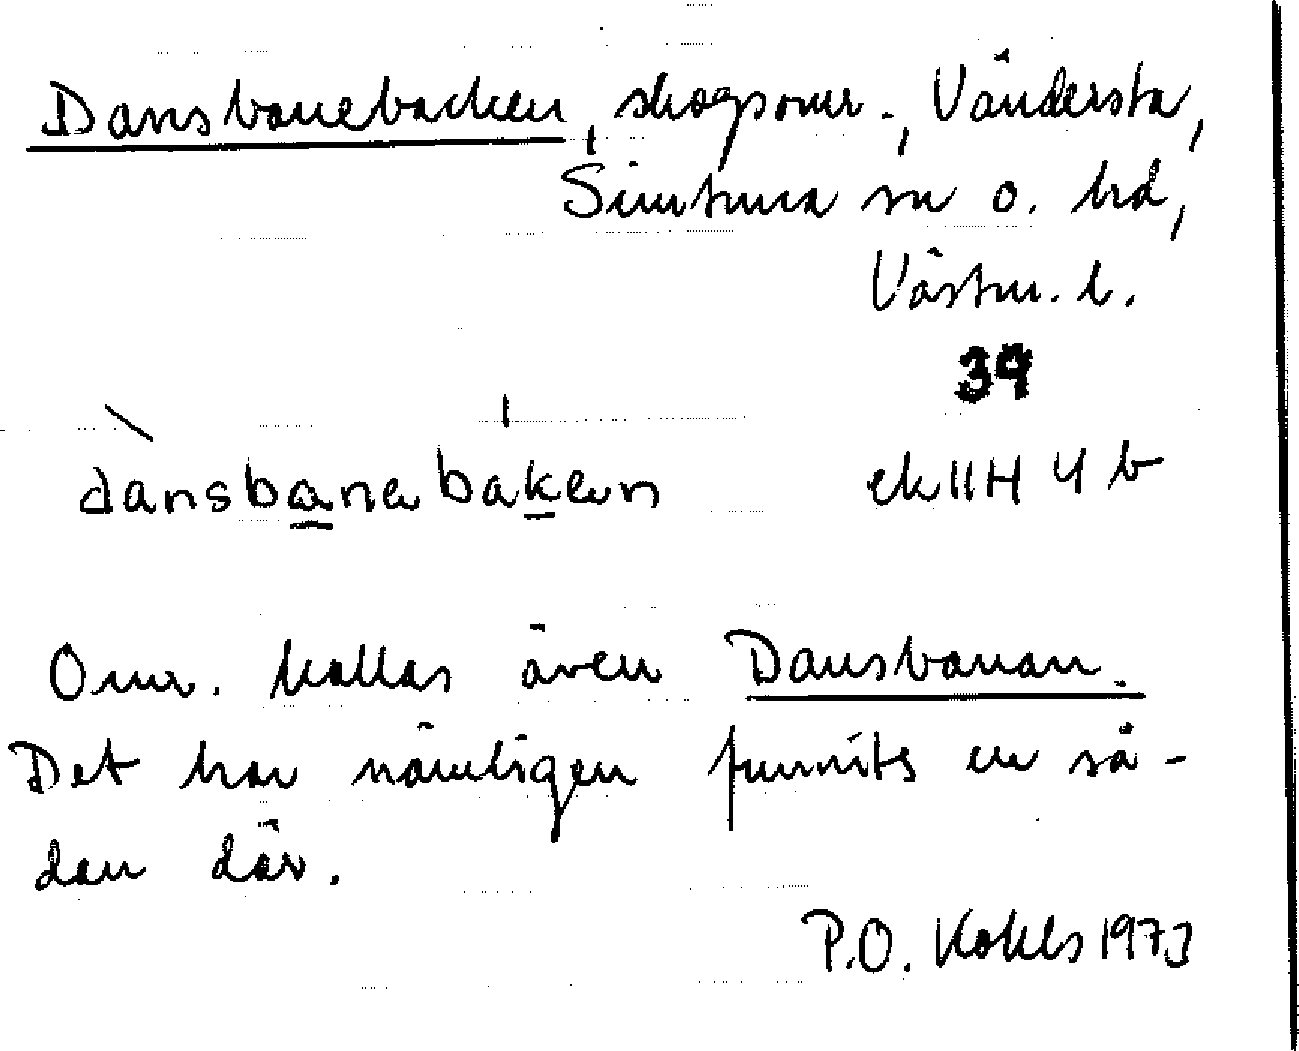 Dansbanebacken, skogsomr., Vändersta,
Simtuna sn o. hd,
Västm. l.
39
dansbanebaken ek 11H 4 b
Omr. kallas även Dansbanan.
Det har nämligen funnits en så-
dan där.
P.O. Kohls 1973